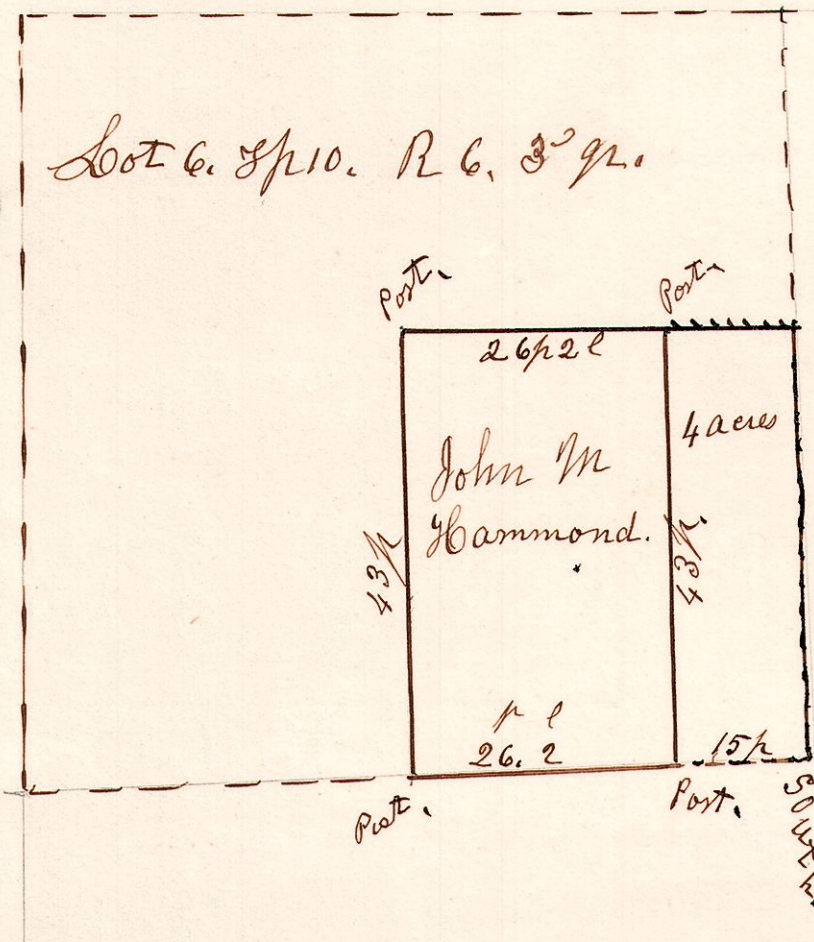 Lot 6. Tp 10. R 6. 3d qr.
Post.
Post.
26p 2l
4 acres
John M
Hammond.
43p
43p.
p l
26. 2
15p
Post.
Post.